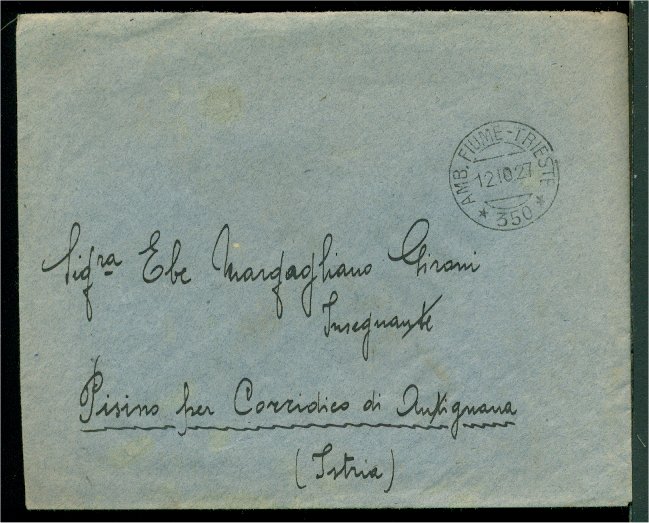 AMB. FIUME-TRIESTE
12.10.27
* 350 *
Sigra Ebe Margagliano Gironi
Insegnante
Pisino per Corridico di Antignana
(Istria)